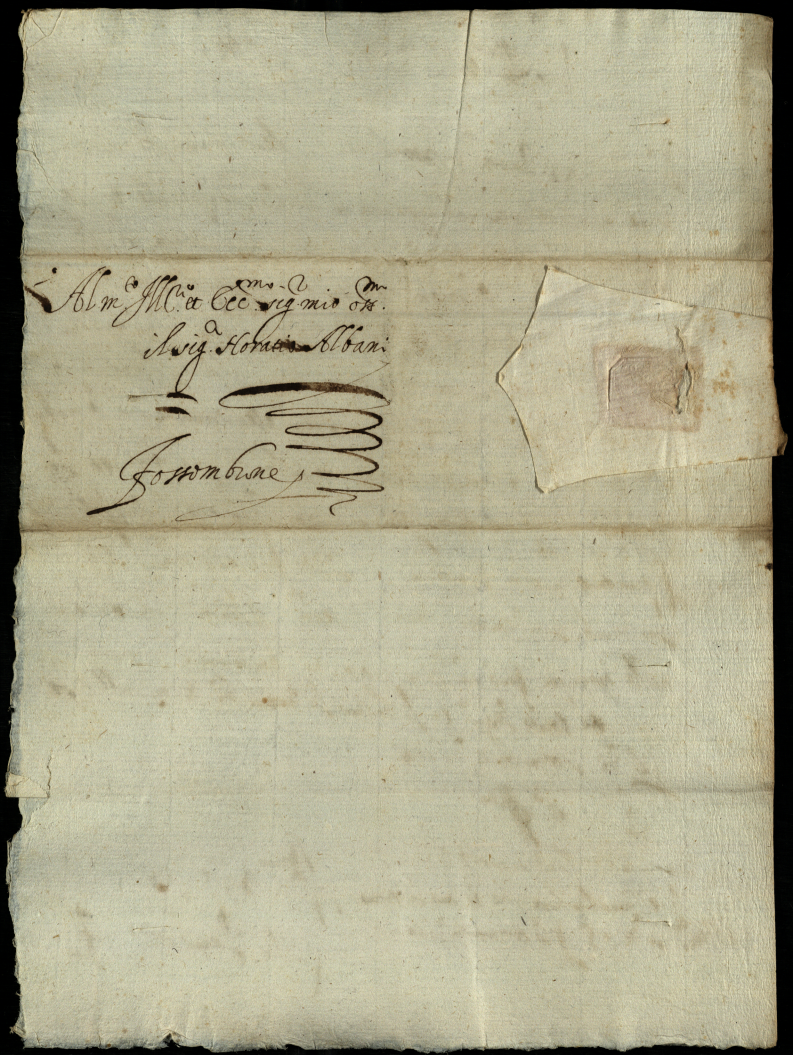 Al m.to Ill.re et Ecc.mo sig.r mio oss.mo
il sig.r Horatio Albani
Fossombrone